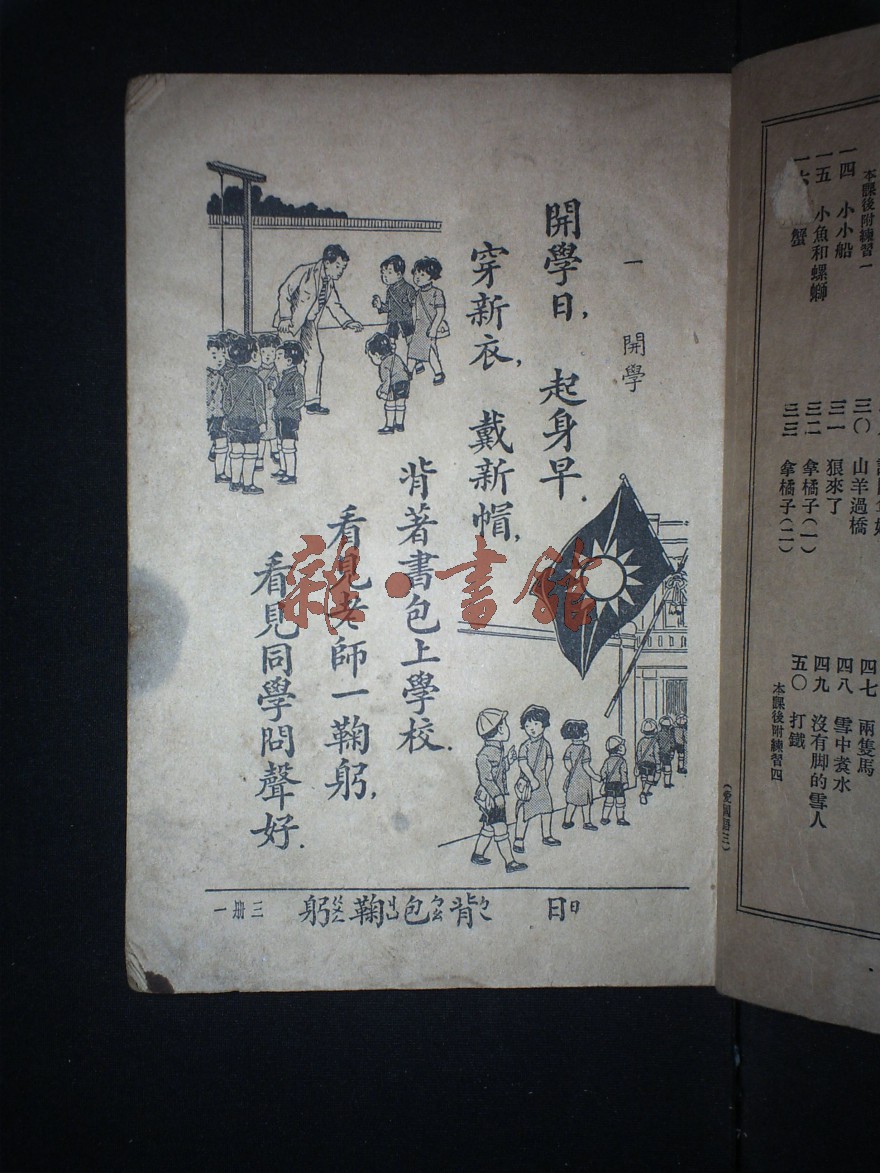 本課後附練習一
一四 小小船
一五 小魚和螺螄
蟹
三〇 山羊過橋
三一 狼來了
三二 拿橘子(一)
三三 拿橘子(二)
四七 兩隻馬
四八 雪中煑水
四九 沒有脚的雪人
五〇 打鐵
本課後附練習四
一 開學
開學日, 起身早.
穿新衣, 戴新帽,
背著書包上學校.
看見老師一鞠躬,
看見同學問聲好.
日ㄖ 背ㄅㄟ 包ㄅㄠ 鞠ㄐㄩ 躬ㄍㄨㄥ
三册 一
雜·書館